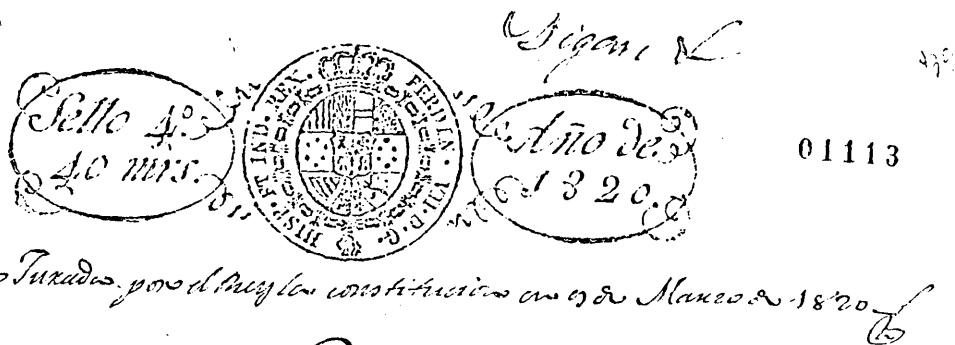 Sello 4º
40 mrs.
FERDIN. VII. D. G. HISP. ET IND. REX.
Año de
1820.
01113
Jurada por el Rey la constitucion en 9 de Marzo de 1820